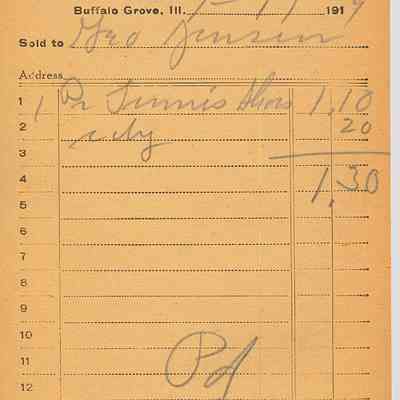 Buffalo Grove, Ill. 1919
Sold to Geo Jensen
Address
1 1 Pr Tennis Shoes 1.10
2 20
3
4 1.30
5
6
7
8
9
10
11
12
Pd